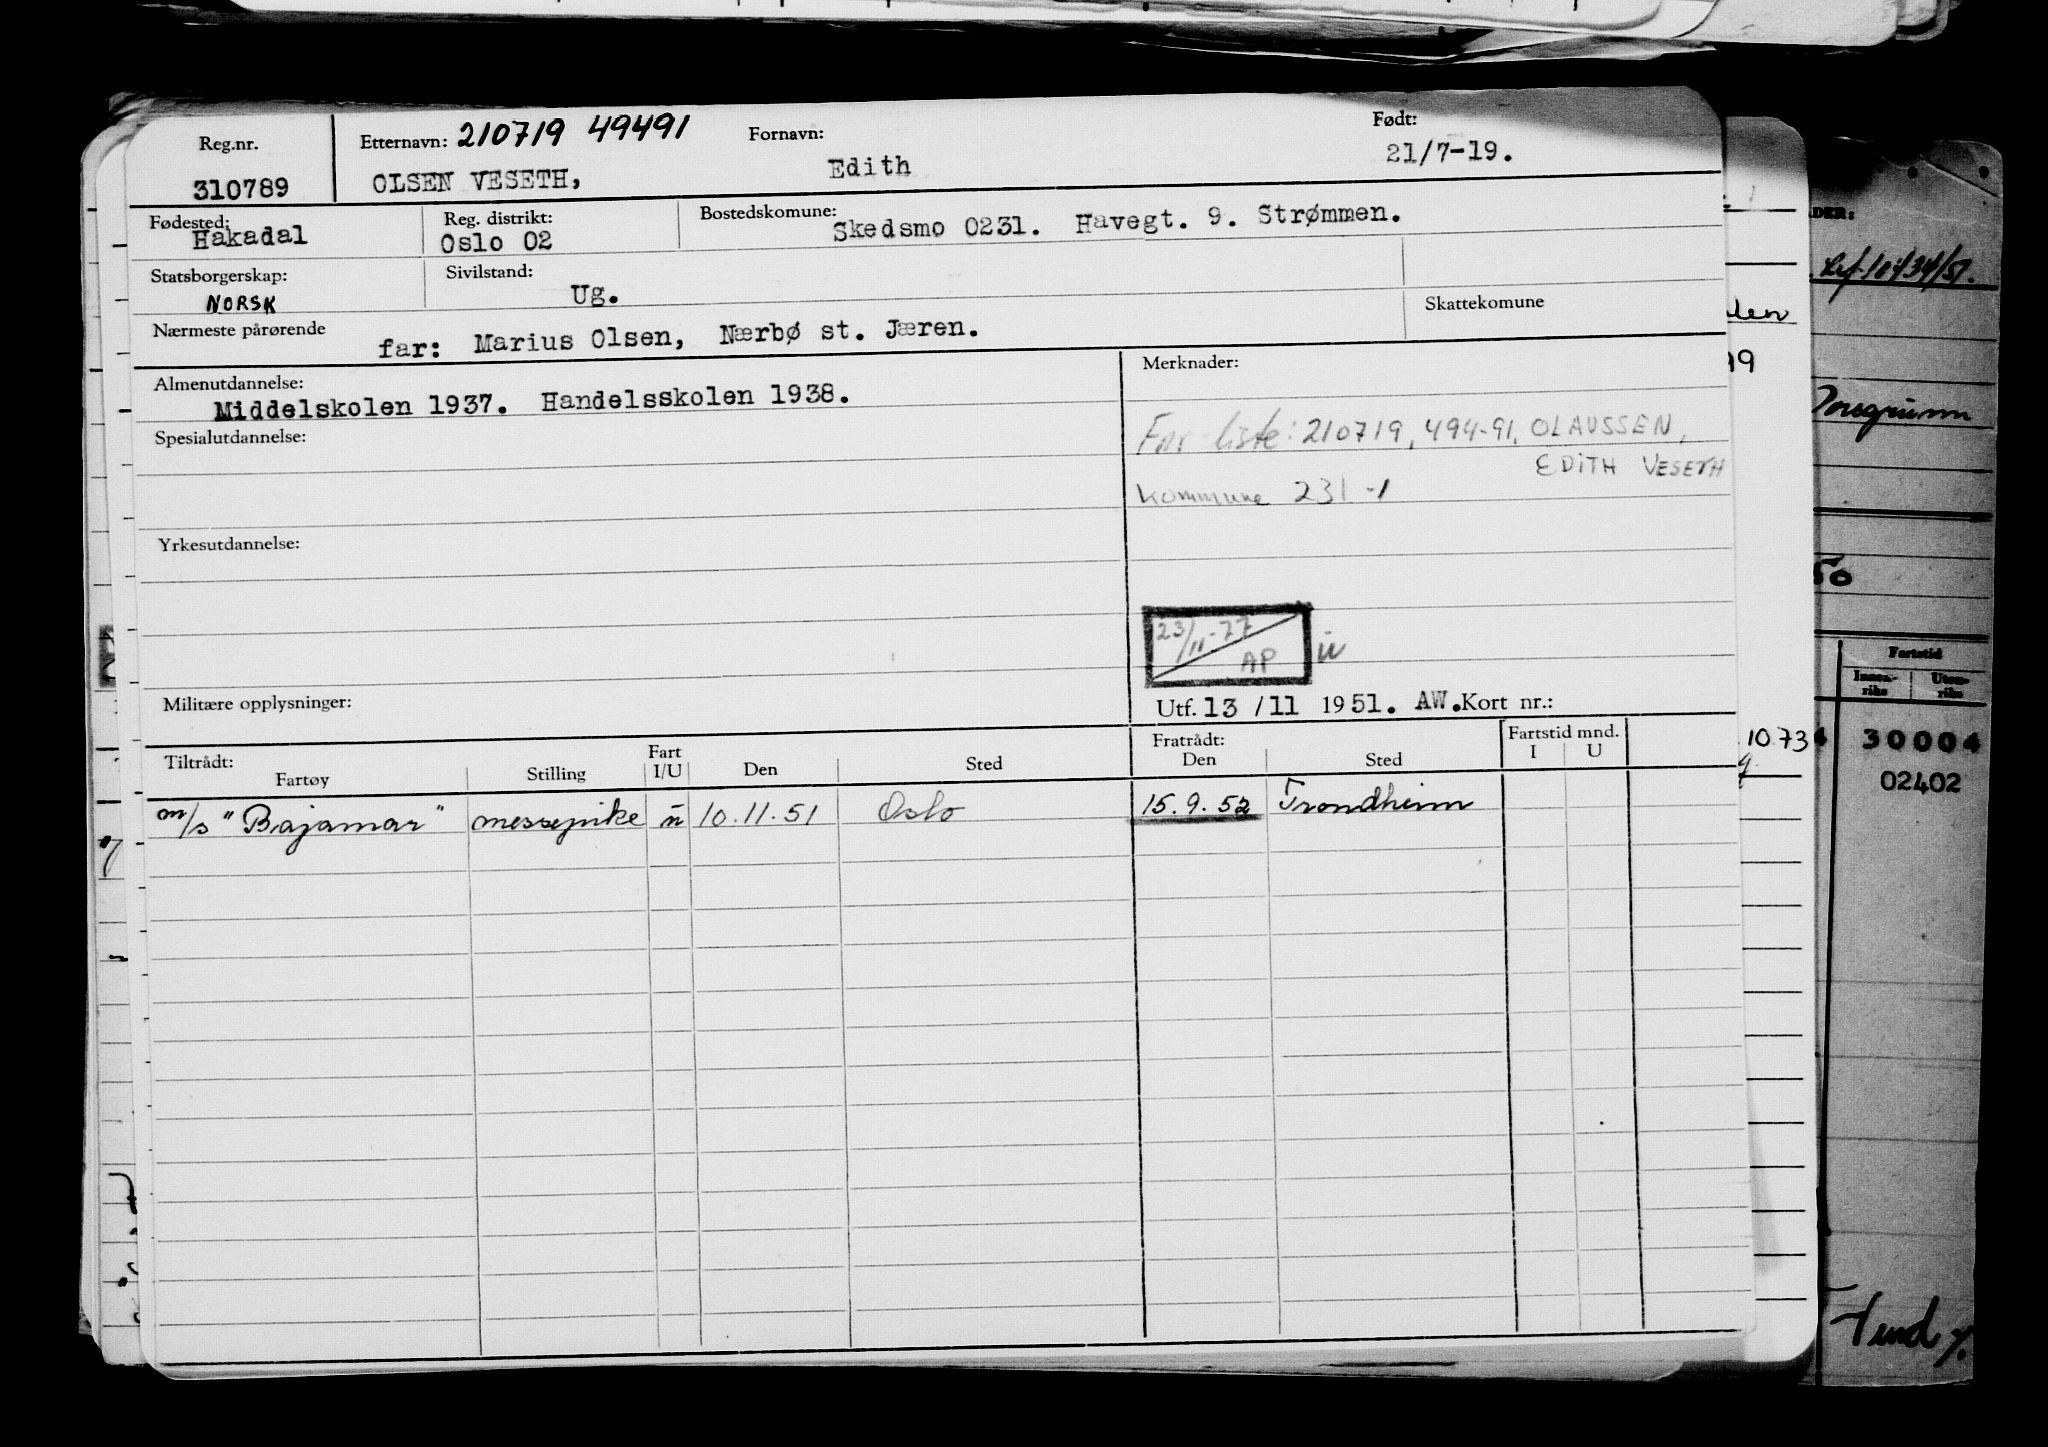 Reg.nr. Etternavn: 210719 49491 Fornavn: Født:
310789 OLSEN VESETH, Edith 21/7-19.
Fødested: Reg. distrikt: Bostedskomune:
Hakadal Oslo 02 Skedsmo 0231. Havegt. 9. Strømmen.
Statsborgerskap: Sivilstand:
NORSK Ug. Skattekomune
Nærmeste pårørende far: Marius Olsen, Nærbø st. Jæren.
Almenutdannelse: Merknader:
Middelskolen 1937. Handelsskolen 1938.
Spesialutdannelse: liste: 210719, 494-91, OLAUSSEN,
EDITH VESETH
kommune 231-1
Yrkesutdannelse:
23/11-77
AP ü
Militære opplysninger: Utf. 13 /11 1951. AW. Kort nr.:
Tiltrådt: Fart Fratrådt: Fartstid mnd.
Fartøy Stilling I/U Den Sted Den Sted I U
m/s "Bajamar" messepike ü 10.11.51 Oslo 15.9.52 Trondheim
10.73
50
Fartstid
Innen-riks Uten-riks
30004
02402